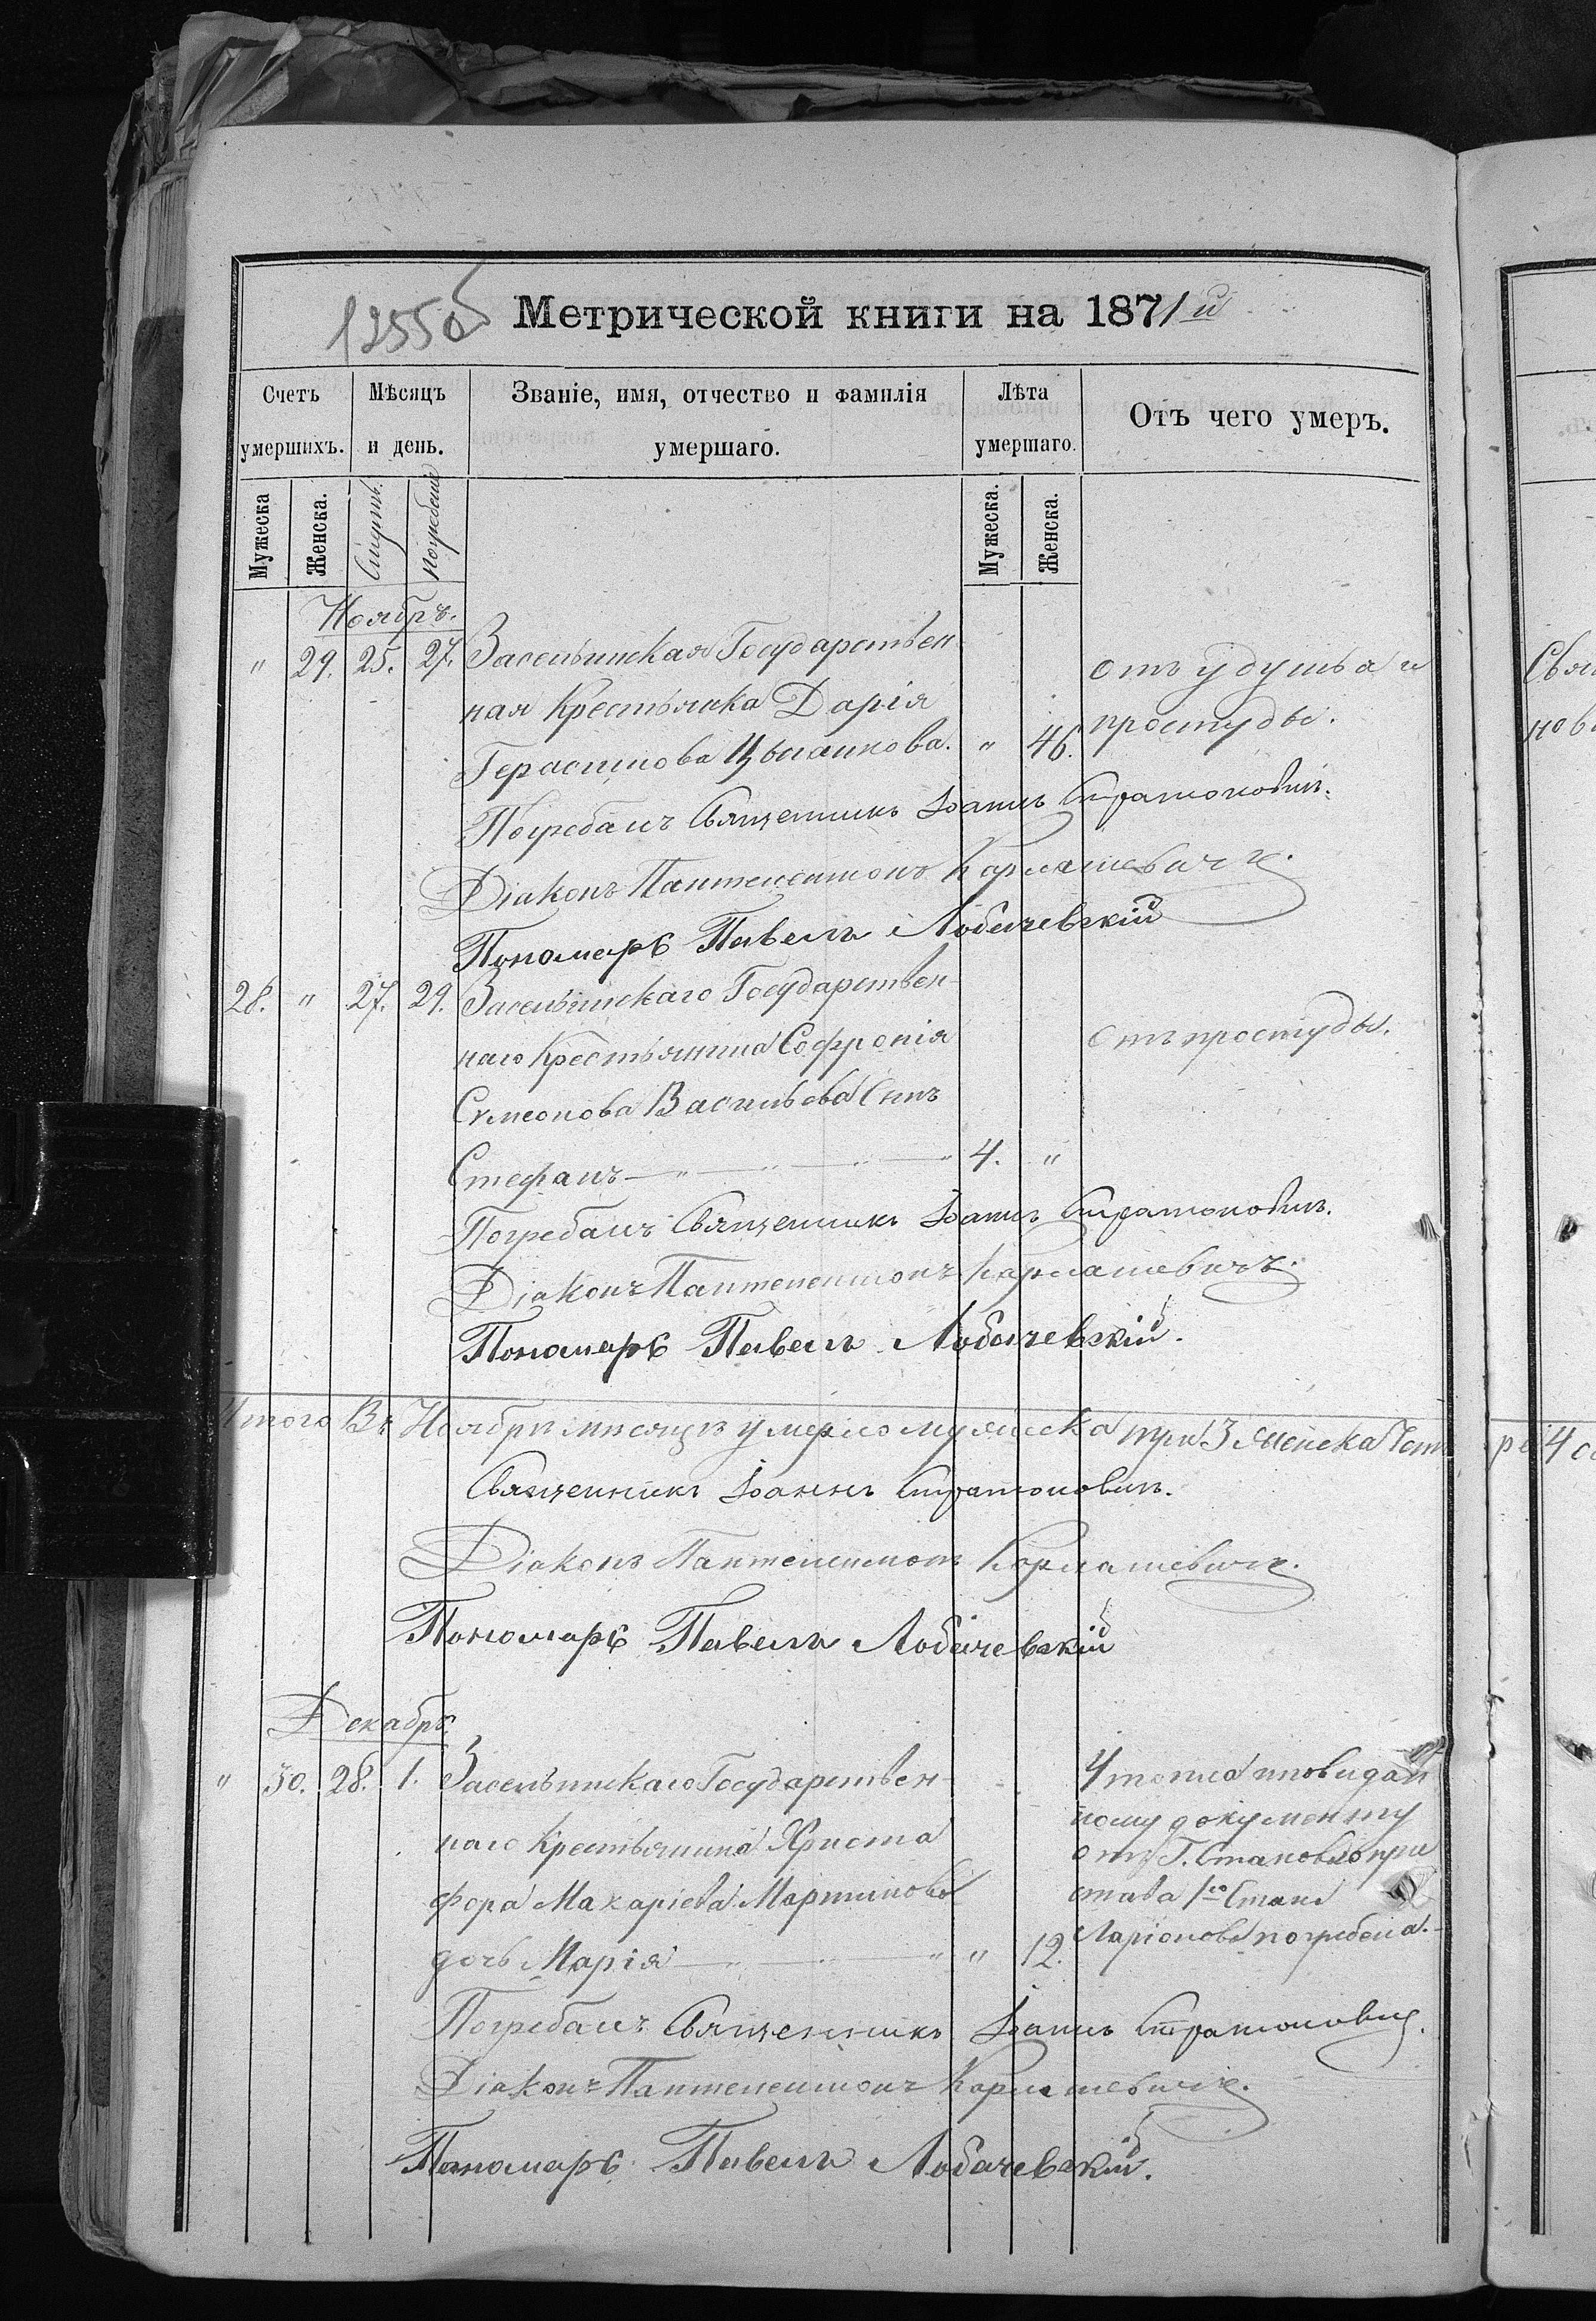 12550б
Метрической книги на 1871й
Счетъ умершихъ.
Мѣсяцъ и день.
Званіе, имя, отчество и фамилія умершаго.
Лѣта умершаго.
Отъ чего умеръ.
Мужеска
Женска.
Смерти.
Погребенія
Мужеска.
Женска.
Ноябрь.
" 29. 25. 27. Засельинская Государствен-
ная Крестьянка Дарія
отъ удушья и
Герасимова Цыганкова. " 46.
простуды.
Погребалъ Священникъ Іоаннъ Стратоновичъ.
Діаконъ Пантелеимонъ Кармашевичъ.
Пономарь Павелъ Лобачевскій
28. " 27. 29. Засельинскаго Государствен-
наго Крестьянина Софронія
Отъ простуды.
Симеонова Васильева Сынъ
Стефанъ — " — " — " — " 4. "
Погребалъ Священникъ Іоаннъ Стратоновичъ.
Діаконъ Пантелеимонъ Кармашевичъ.
Пономарь Павелъ Лобачевскій.
Итого Въ Ноябрѣ мѣсяцѣ умерло мужеска три 3 женска Чет
Священникъ Іоаннъ Стратоновичъ.
Діаконъ Пантелеимонъ Кармашевичъ.
Пономарь Павелъ Лобачевскій
Декабрь.
" 30. 28. 1. Засельинскаго Государствен-
наго Крестьянина Христо
фора Макаріева Мартинова
дочь Марія — " — " — " " 12.
Утопла по выдан
ному документу
отъ Г. Становаго при
става 1го Стана
Ларіонова погребена.
Погребалъ Священникъ Іоаннъ Стратоновичъ.
Діаконъ Пантелеимонъ Кармашевичъ.
Пономарь Павелъ Лобачевскій.